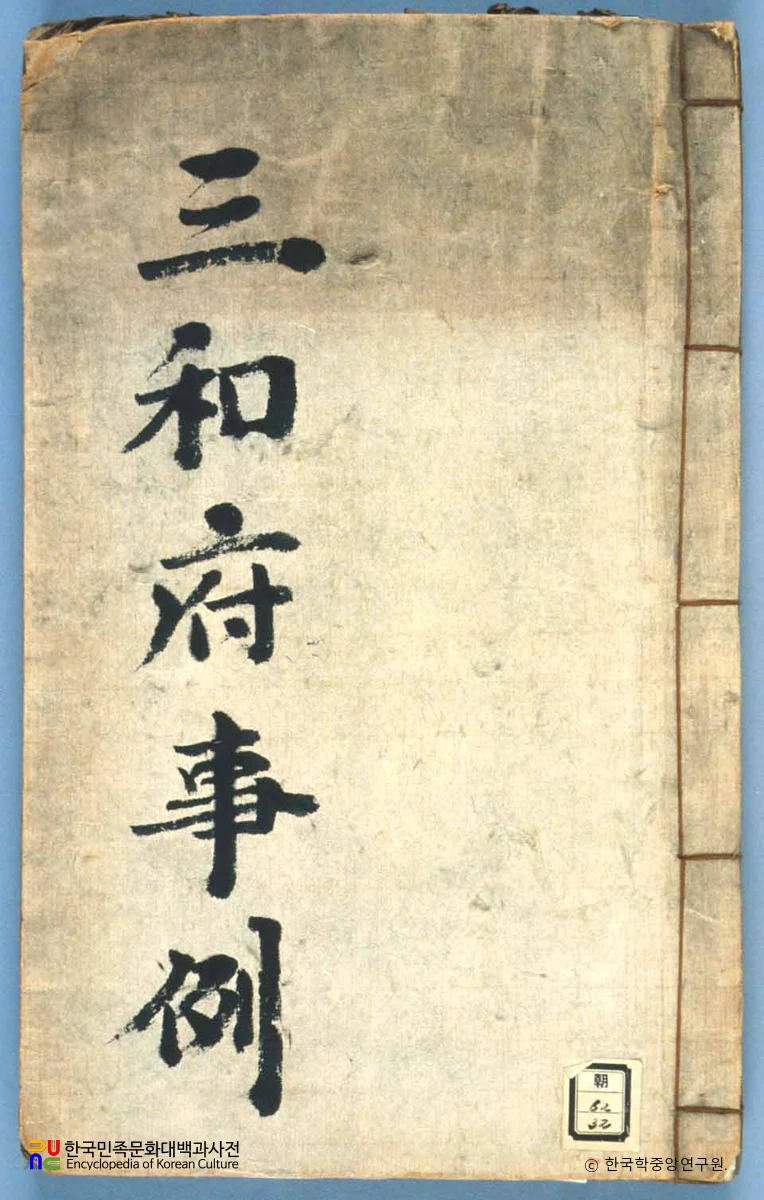 三和府事例
朝
62
32
한국민족문화대백과사전
Encyclopedia of Korean Culture
ⓒ 한국학중앙연구원.